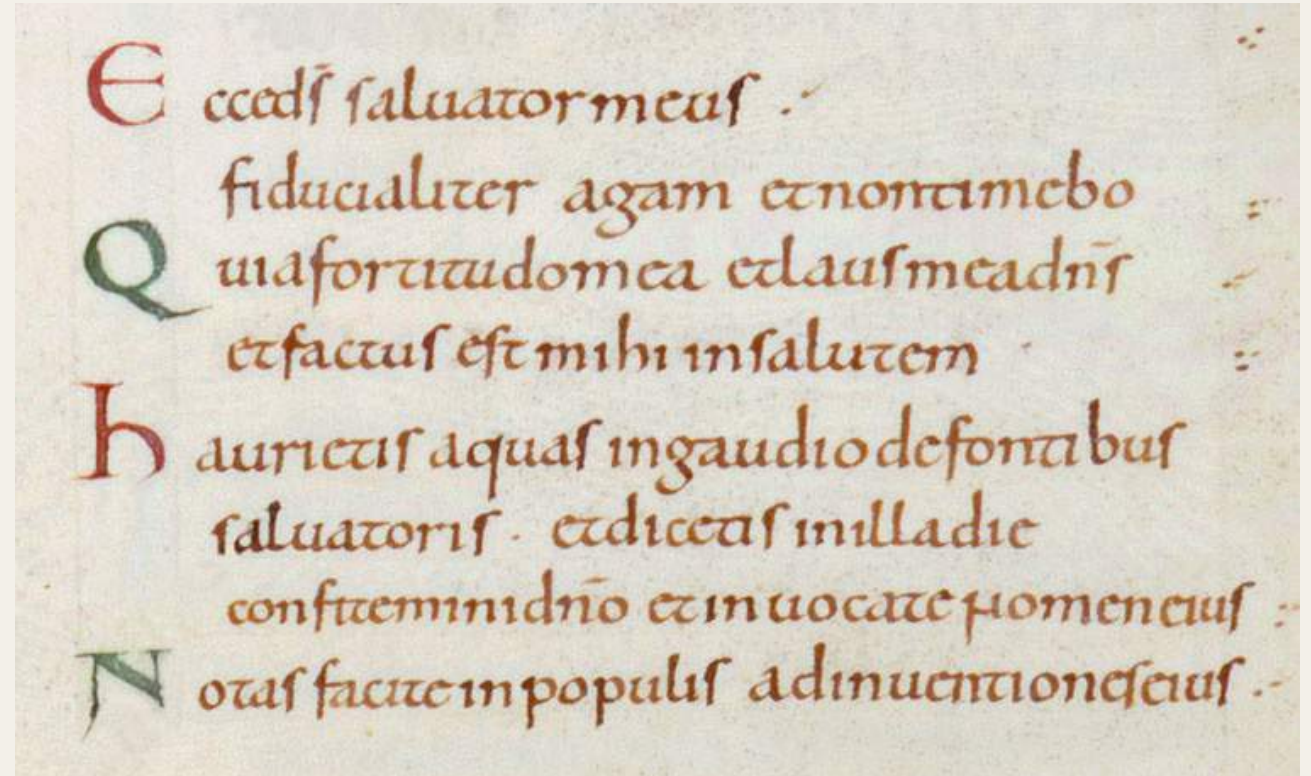 Ecceds̄ saluatormeus .
fiducialiter agam etnontimebo
Quiafortitudomea etlausmeadn̄s
etfactus est mihi insalutem
haurietis aquas ingaudiodefontibus
saluatoris . etdicetis inilladie
confiteminidn̄o etinuocate nomeneius
Notas facite inpopulis adinuentioneseius .